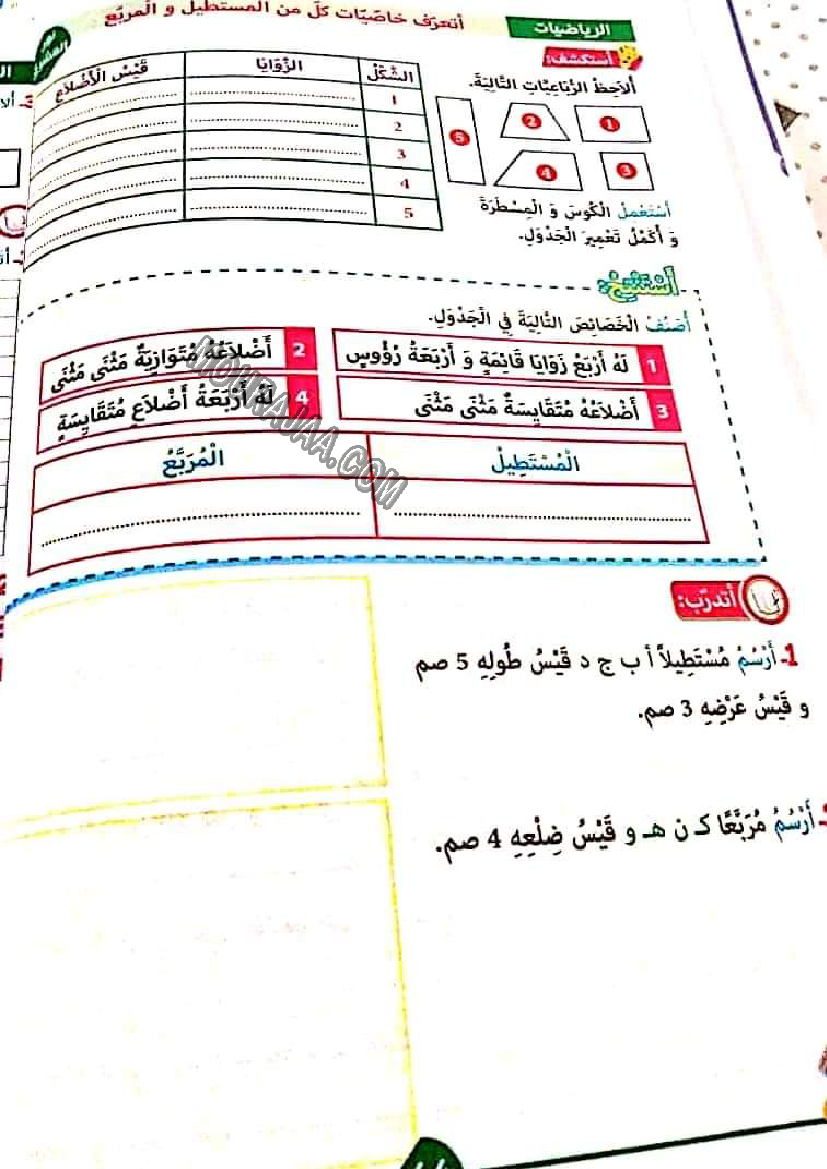 الرياضيات
أتعرّف خاصّيّات كلّ من المستطيل و المربّع
أستكشف:
أُلاَحِظُ الرُّبَاعِيَّاتِ التَّالِيَةَ.
1
2
3
4
5
أَسْتَعْمِلُ الْكُوسَ وَ الْمِسْطَرَةَ
وَ أُكْمِلُ تَعْمِيرَ الْجَدْوَلِ.
الشَّكْلُ الزَّوَايَا قَيْسُ الْأَضْلاَعِ
1
2
3
4
5
أَسْتَنْتِجُ:
أُصَنِّفُ الْخَصَائِصَ التَّالِيَةَ فِي الْجَدْوَلِ.
1 لَهُ أَرْبَعُ زَوَايَا قَائِمَةٍ وَ أَرْبَعَةُ رُؤُوسٍ
2 أَضْلاَعُهُ مُتَوَازِيَةٌ مَثْنَى مَثْنَى
3 أَضْلاَعُهُ مُتَقَايِسَةٌ مَثْنَى مَثْنَى
4 لَهُ أَرْبَعَةُ أَضْلاَعٍ مُتَقَايِسَةٍ
الْمُسْتَطِيلُ الْمُرَبَّعُ
MOURAJAA.COM
أتدرّب:
1- أَرْسُمُ مُسْتَطِيلاً أ ب ج د قَيْسُ طُولِهِ 5 صم
و قَيْسُ عَرْضِهِ 3 صم.
أَرْسُمُ مُرَبَّعًا كـ ن هـ و قَيْسُ ضِلْعِهِ 4 صم.